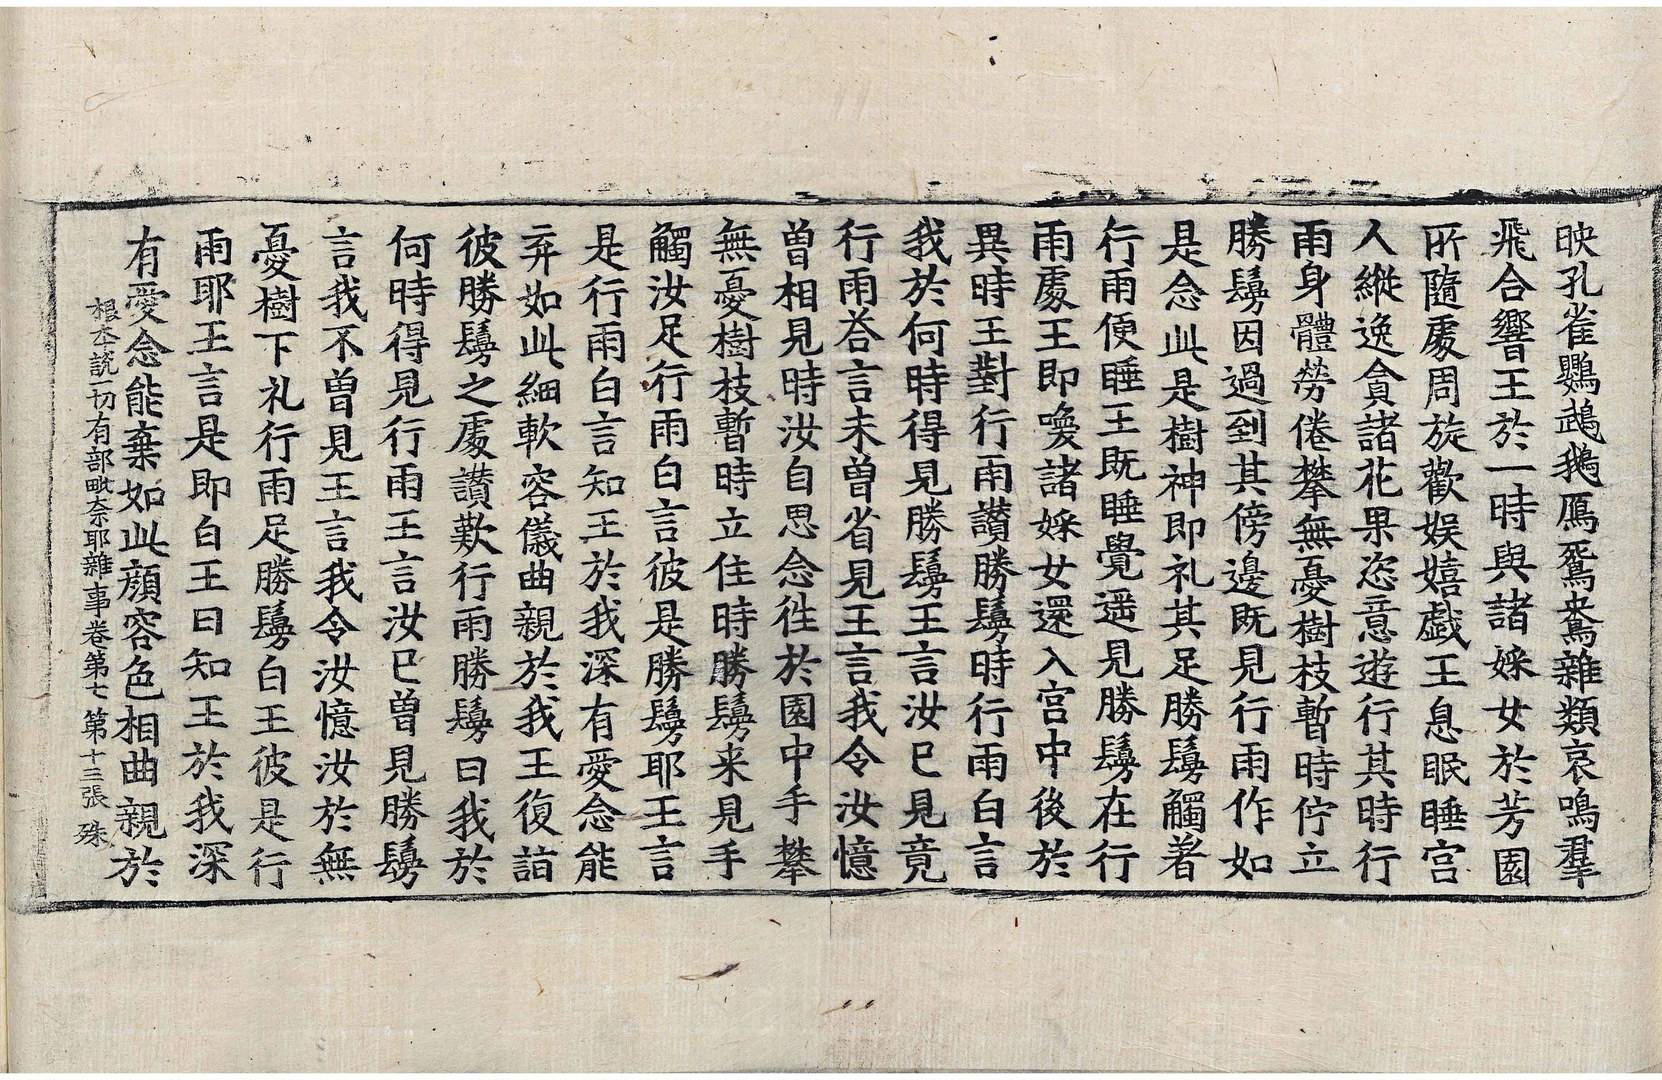 映孔雀鸚鵡鵝鴈鴛鴦雜類哀鳴羣
飛合響王於一時與諸婇女於芳園
所隨處周旋歡娛嬉戲王息眠睡宮
人縱逸貪諸花果恣意遊行其時行
雨身體勞倦攀無憂樹枝暫時佇立
勝鬘因過到其傍邊旣見行雨作如
是念此是樹神即礼其足勝鬘觸著
行雨便睡王旣睡覺遥見勝鬘在行
雨處王即喚諸婇女還入宮中後於
異時王對行雨讃勝鬘時行雨白言
我於何時得見勝鬘王言汝已見竟
行雨荅言未曾省見王言我令汝憶
曾相見時汝自思念徃於園中手攀
無憂樹枝暫時立住時勝鬘来見手
觸汝足行雨白言彼是勝鬘耶王言
是行雨白言知王於我深有愛念能
弃如此細軟容儀曲親於我王復詣
彼勝鬘之處讃歎行雨勝鬘曰我於
何時得見行雨王言汝已曾見勝鬘
言我不曾見王言我令汝憶汝於無
憂樹下礼行雨足勝鬘白王彼是行
雨耶王言是即白王曰知王於我深
有愛念能棄如此顔容色相曲親於
根本説一切有部毗奈耶雜事卷第七 第十三張 殊